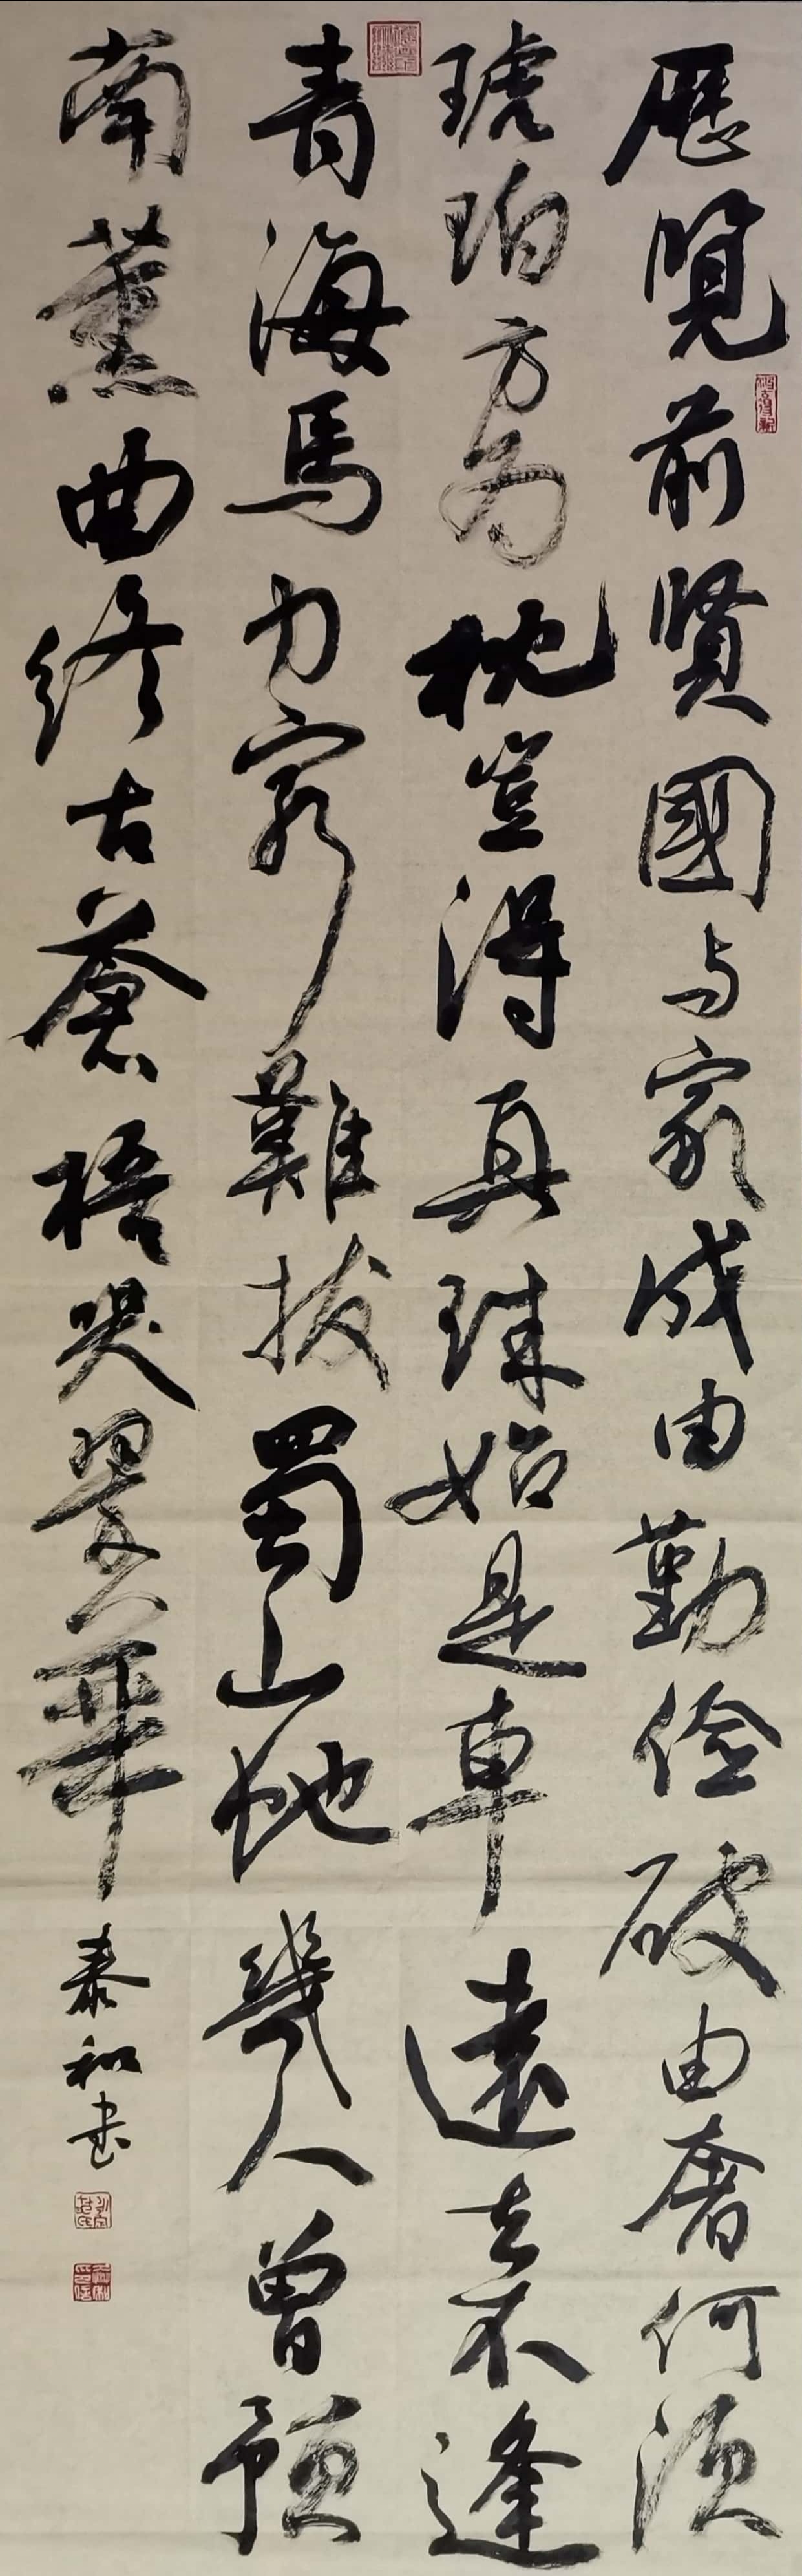 歷覽前賢國与家成由勤儉破由奢何須
琥珀方為枕豈得真珠始是車遠去不逢
青海馬力窮難拔蜀山蛇幾人曾預
南薰曲終古蒼梧哭翠華 泰和书